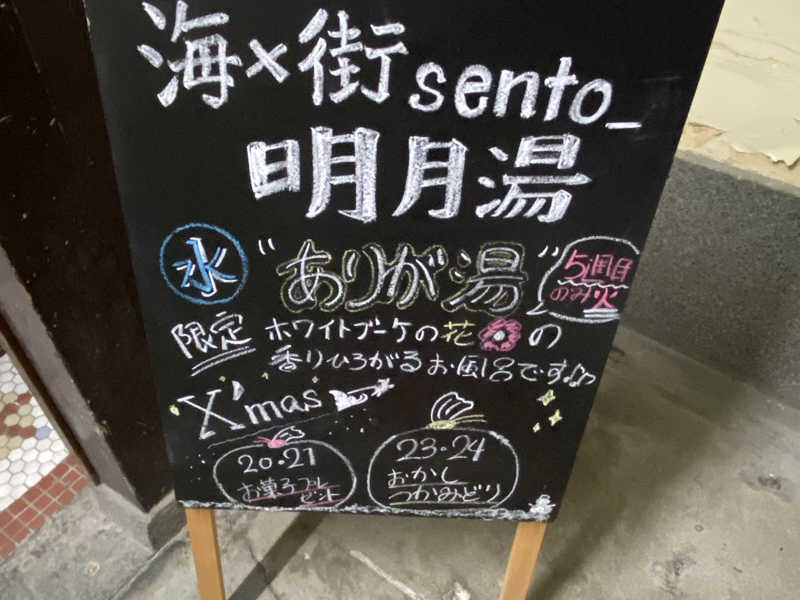 海×街sento_
明月湯
水 "ありが湯" 5週目
のみ火
限定 ホワイトブーケの花の
香りひろがるお風呂です♪
X'mas
20・21
お菓子プレ
ゼント
23・24
おかし
つかみどり